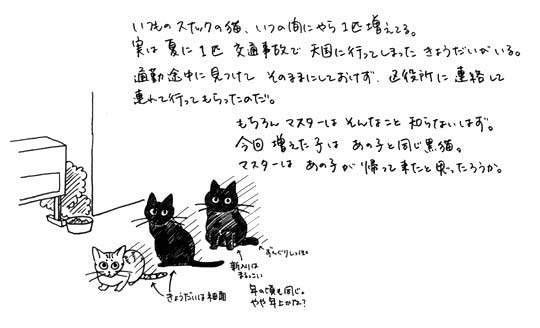 いつものスナックの猫、いつの間にやら1匹増えてる。
実は夏に1匹 交通事故で 天国に行ってしまった きょうだいがいる。
通勤途中に見つけて そのままにしておけず、区役所に連絡して
連れて行ってもらったのだ。
もちろん マスターは そんなこと 知らないはず。
今回 増えた子は あの子と同じ黒猫。
マスターは あの子が 帰って来たと思ったろうか。
ずんぐりしっぽ
新入りは
まるっこい
年の頃も同じ。
やや年上かな?
きょうだいは細面